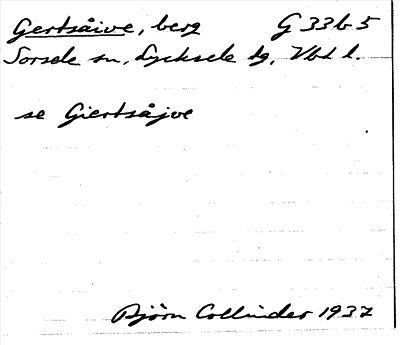 Gertsåive, berg G 33b 5
Sorsele sn, Lycksele tg, Vbl l.
se Giertsåjve
Björn Collinder 1937